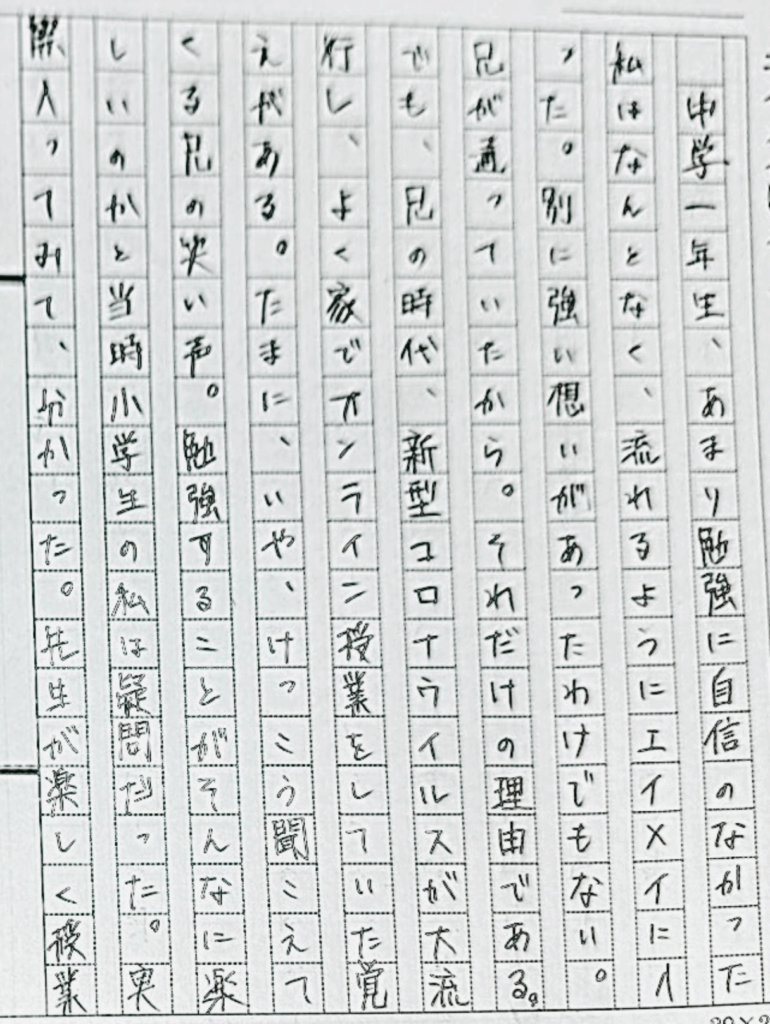 中学一年生、あまり勉強に自信のなかった
私はなんとなく、流れるようにエイメイに入
った。別に強い想いがあったわけでもない。
兄が通っていたから。それだけの理由である。
でも、兄の時代、新型コロナウイルスが大流
行し、よく家でオンライン授業をしていた覚
えがある。たまに、いや、けっこう聞こえて
くる兄の笑い声。勉強することがそんなに楽
しいのかと当時小学生の私は疑問だった。実
際入ってみて、分かった。先生が楽しく授業